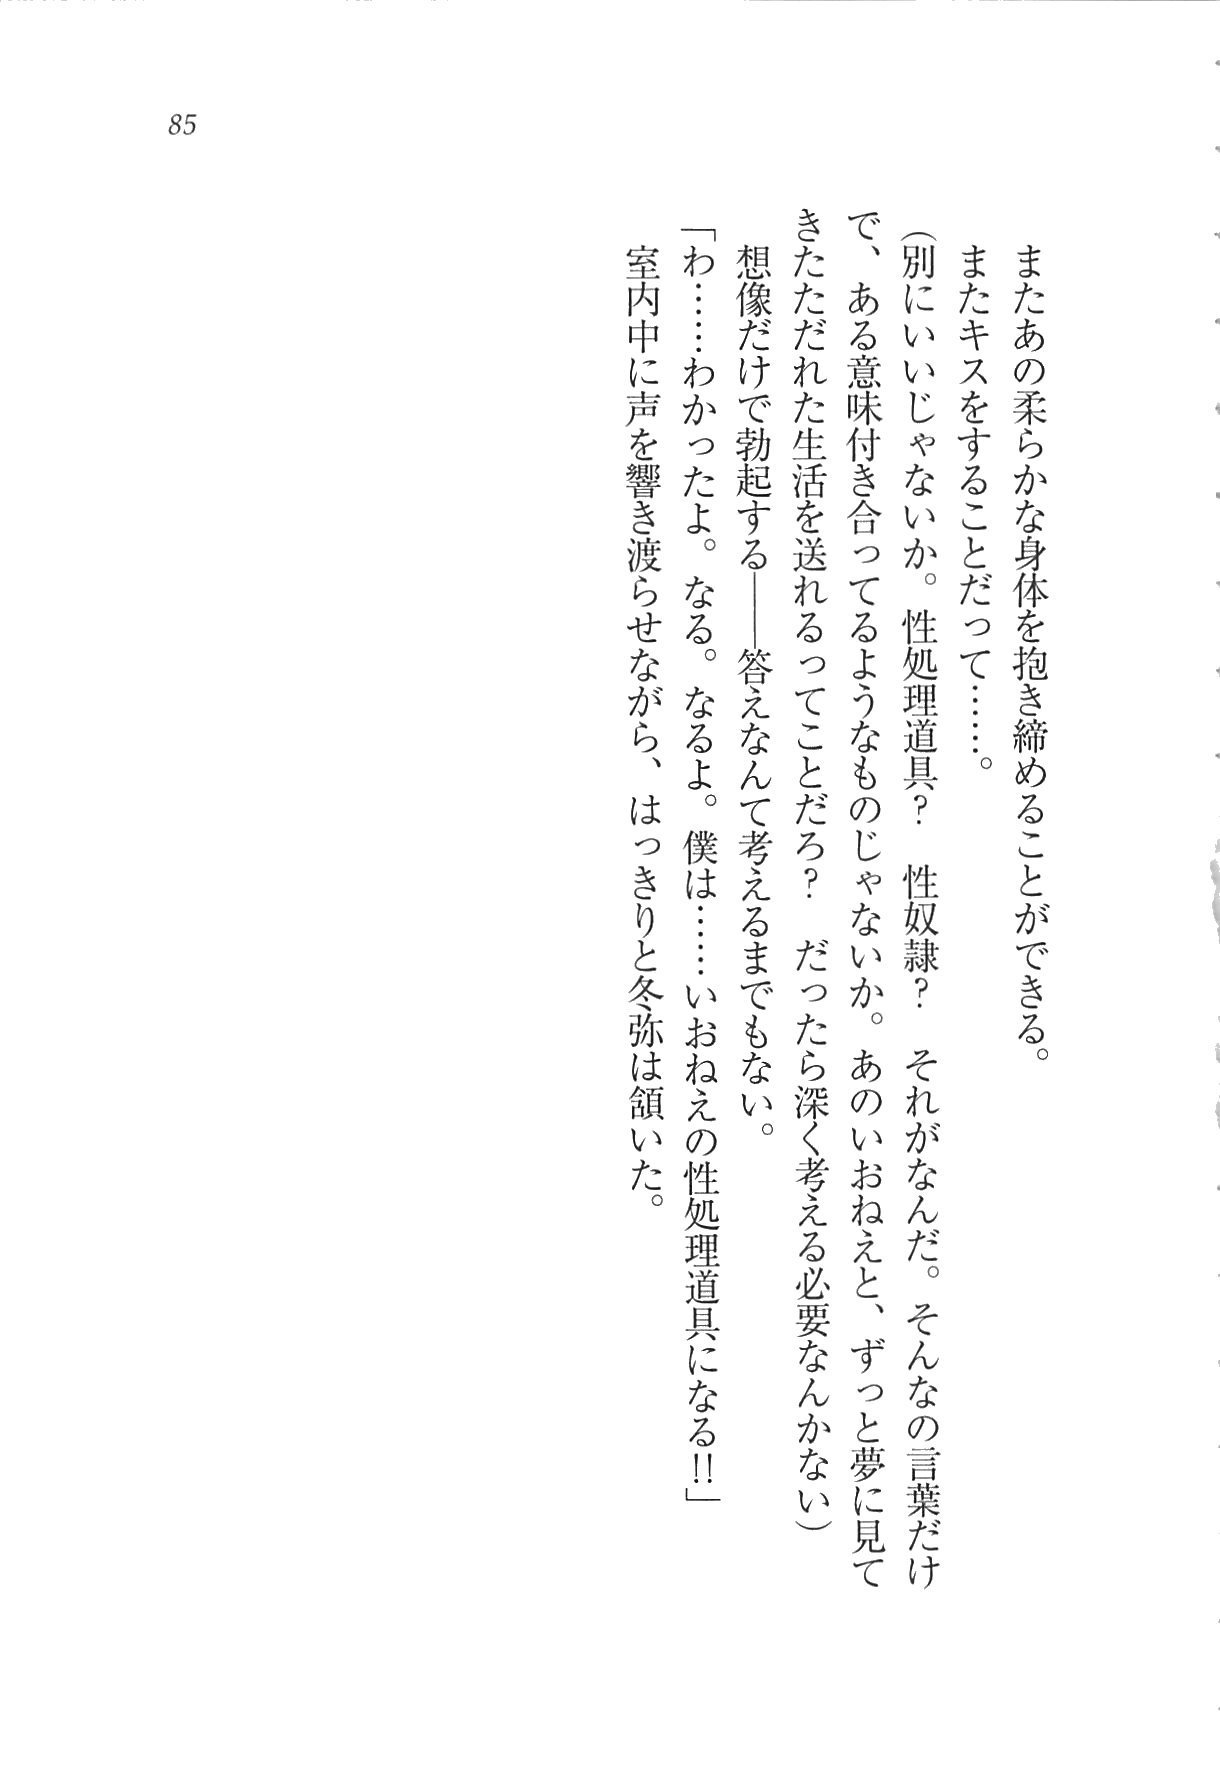 85
またあの柔らかな身体を抱き締めることができる。
またキスをすることだって……。
（別にいいじゃないか。性処理道具？　性奴隷？　それがなんだ。そんなの言葉だけ
で、ある意味付き合ってるようなものじゃないか。あのいおねえと、ずっと夢に見て
きたただれた生活を送れるってことだろ？　だったら深く考える必要なんかない）
想像だけで勃起する――答えなんて考えるまでもない。
「わ……わかったよ。なる。なるよ。僕は……いおねえの性処理道具になる!!」
室内中に声を響き渡らせながら、はっきりと冬弥は頷いた。